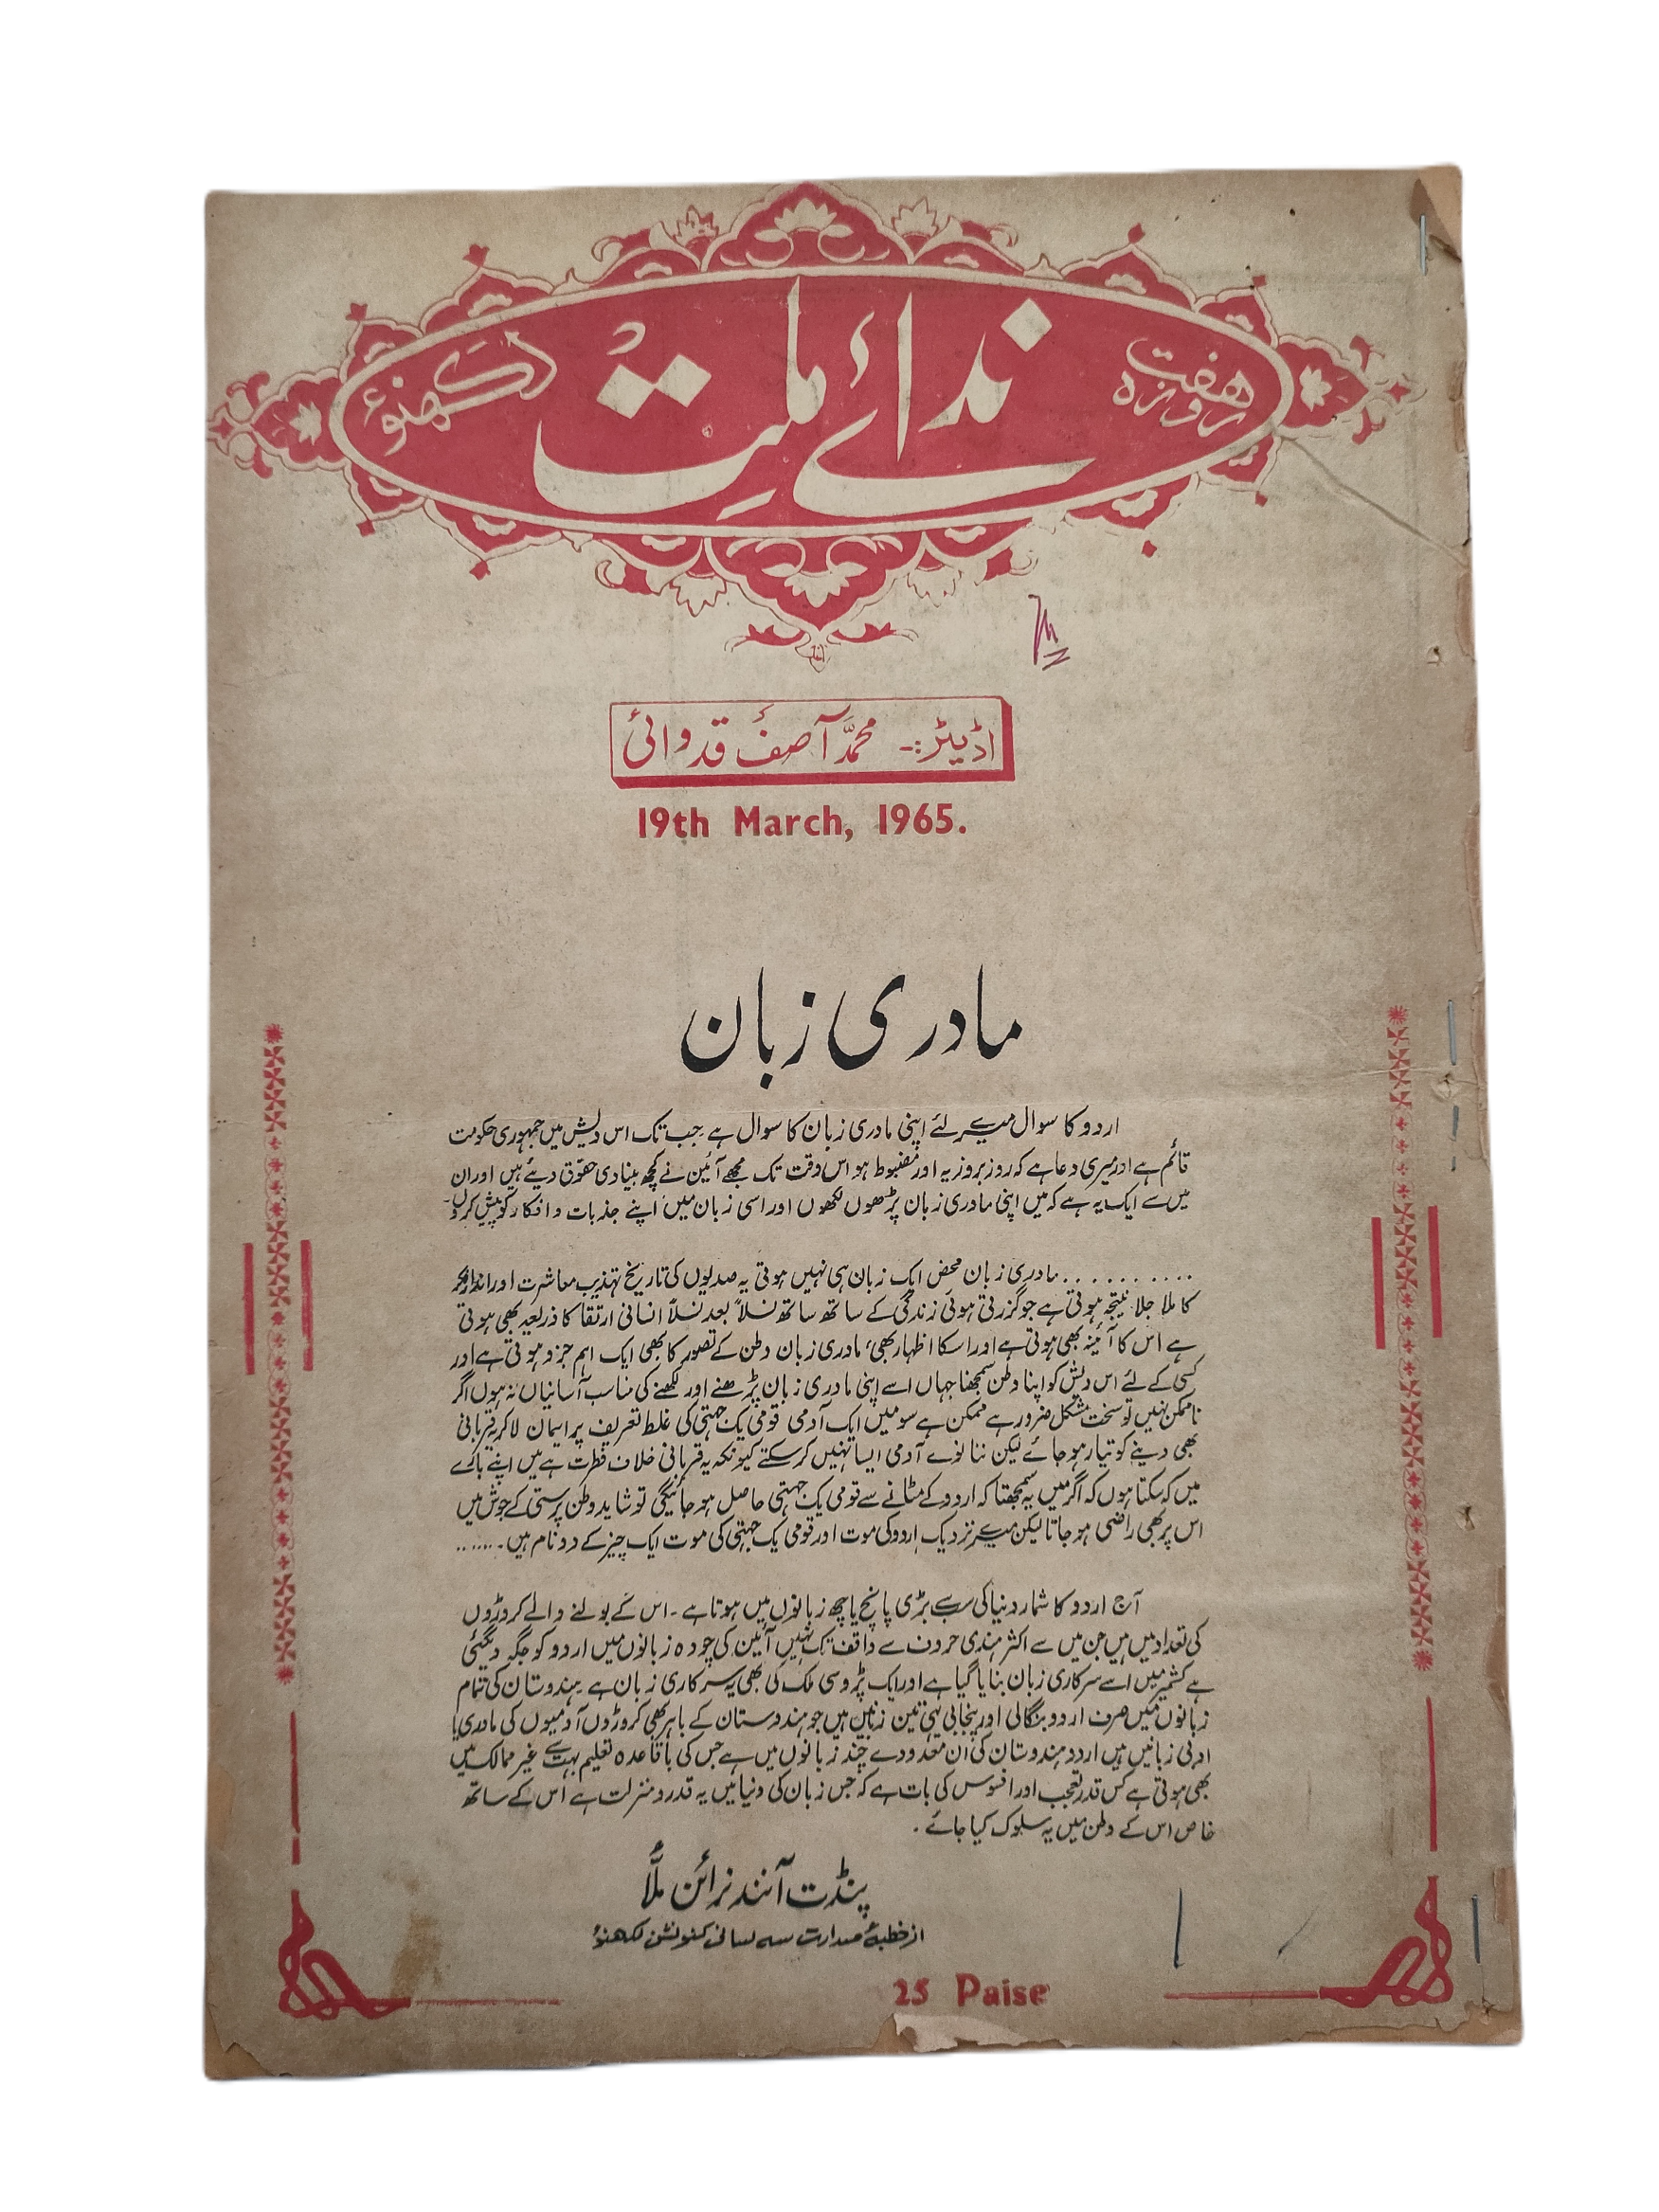 ہفت روزہ
ندائے ملت
لکھنؤ
اڈیٹر:۔ محمد آصف قدوائی
19th March, 1965.
مادری زبان
اردو کا سوال میرے لئے اپنی مادری زبان کا سوال ہے جب تک اس دیش میں جمہوری حکومت
قائم ہے اور میری دعا ہے کہ روز بروز یہ اور مضبوط ہو اس وقت تک مجھے آئین نے کچھ بنیادی حقوق دیئے ہیں اور ان
میں سے ایک یہ ہے کہ میں اپنی مادری زبان پڑھوں لکھوں اور اسی زبان میں اپنے جذبات و افکار کو پیش کروں۔
........... مادری زبان محض ایک زبان ہی نہیں ہوتی یہ صدیوں کی تاریخ تہذیب معاشرت اور انداز فکر
کا ملا جلا نتیجہ ہوتی ہے جو گزرتی ہوئی زندگی کے ساتھ ساتھ نسلاً بعد نسلاً انسانی ارتقا کا ذریعہ بھی ہوتی
ہے اس کا آئینہ بھی ہوتی ہے اور اسکا اظہار بھی، مادری زبان وطن کے تصور کا بھی ایک اہم جزو ہوتی ہے اور
کسی کے لئے اس دیش کو اپنا وطن سمجھنا جہاں اسے اپنی مادری زبان پڑھنے اور لکھنے کی مناسب آسانیاں نہ ہوں اگر
ناممکن نہیں تو سخت مشکل ضرور ہے ممکن ہے سو میں ایک آدمی قومی یک جہتی کی غلط تعریف پر ایمان لا کر یہ قربانی
بھی دینے کو تیار ہو جائے لیکن ننانوے آدمی ایسا نہیں کر سکتے کیونکہ یہ قربانی خلاف فطرت ہے میں اپنے بارے
میں کہہ سکتا ہوں کہ اگر میں یہ سمجھتا کہ اردو کے مٹانے سے قومی یک جہتی حاصل ہو جائیگی تو شاید وطن پرستی کے جوش میں
اس پر بھی راضی ہو جاتا لیکن میرے نزدیک اردو کی موت اور قومی یک جہتی کی موت ایک چیز کے دو نام ہیں۔......
آج اردو کا شمار دنیا کی سب سے بڑی پانچ یا چھ زبانوں میں ہوتا ہے۔ اس کے بولنے والے کروڑوں
کی تعداد میں ہیں جن میں سے اکثر ہندی حروف سے واقف تک نہیں آئین کی چودہ زبانوں میں اردو کو جگہ دیگئی
ہے کشمیر میں اسے سرکاری زبان بنایا گیا ہے اور ایک پڑوسی ملک کی بھی یہ سرکاری زبان ہے ہندوستان کی تمام
زبانوں میں صرف اردو بنگالی اور پنجابی یہی تین زبانیں ہیں جو ہندوستان کے باہر بھی کروڑوں آدمیوں کی مادری یا
ادبی زبانیں ہیں اردو ہندوستان کی ان معدودے چند زبانوں میں ہے جس کی باقاعدہ تعلیم بہت سے غیر ممالک میں
بھی ہوتی ہے کس قدر تعجب اور افسوس کی بات ہے کہ جس زبان کی دنیا میں یہ قدر و منزلت ہے اس کے ساتھ
خاص اس کے وطن میں یہ سلوک کیا جائے۔
پنڈت آنند نرائن ملّا
از خطبۂ صدارت سہ لسانی کنونشن لکھنؤ
25 Paise